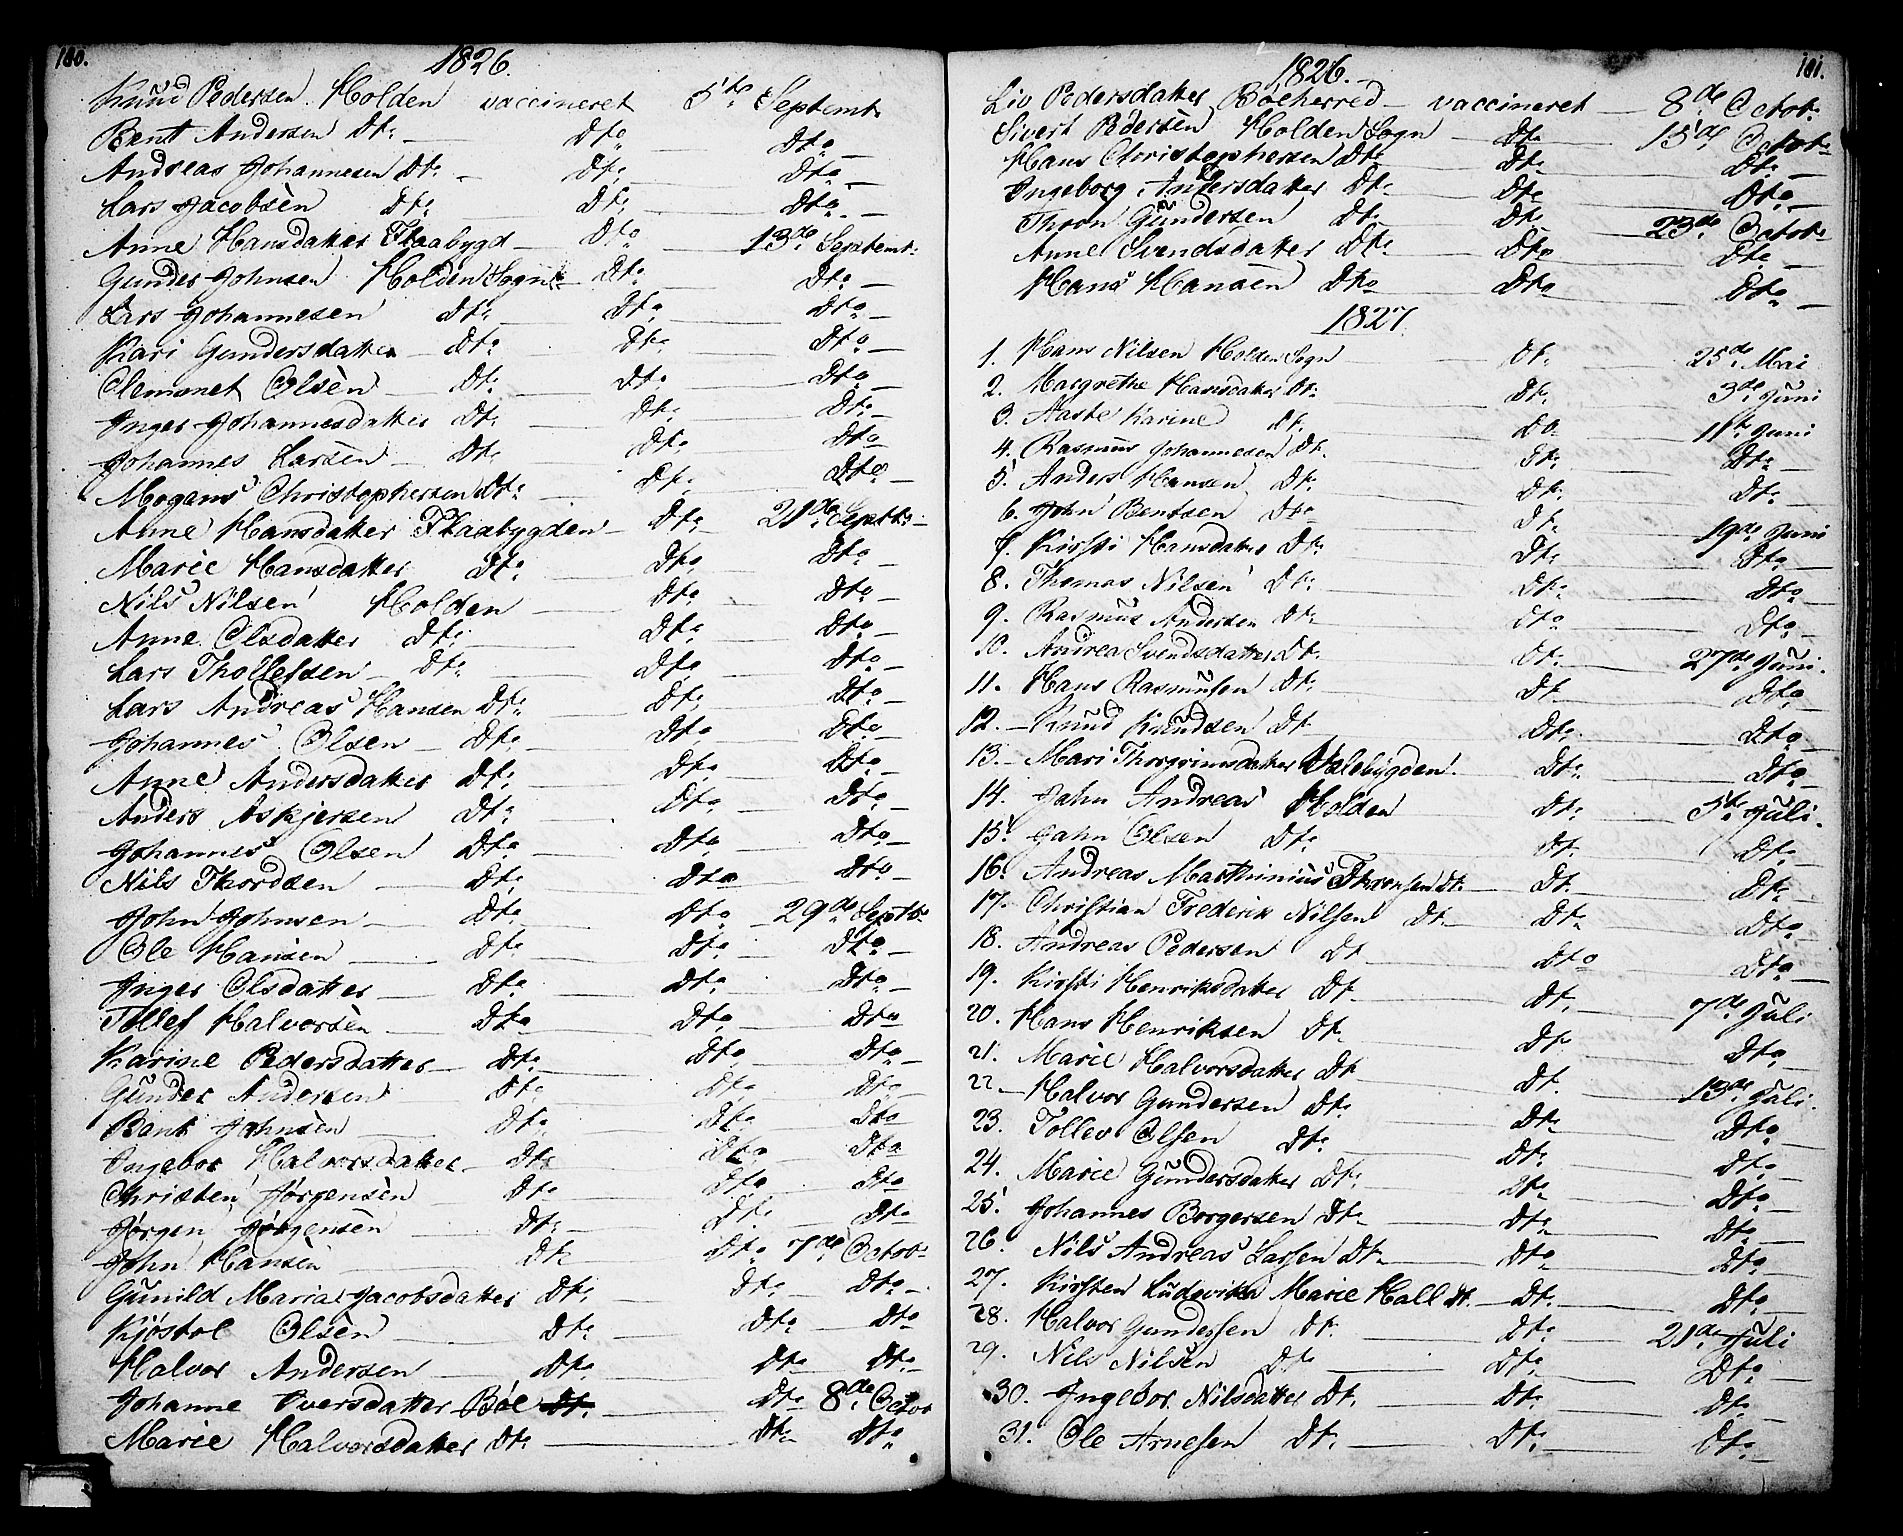 100.
1826.
Knud Pedersen Holden vaccineret 5te Septemt.
Bent Andersen Dt: Dto Dto
Andreas Johannesen Dt: Dt: Dto
Lars Jacobsen Dto Dt: Dto
Anne Hansdatter Flaabygd Dto 13de Septemt:
Gunder Johnsen Holden Sogn Dto Dto
Lars Johannesen Dt: Dto Dto
Kari Gundersdatter Dto Dto Dto
Clemmet Olsen Dt: Dto Dto
Inger Johannesdatter Dt: Dto Dto
Johannes Larsen Dt: Dto Dto
Mogans Christophersen Dt: Dt: Dto
Anne Hansdatter Flaabygden Dto 21de Septb:
Marie Hansdatter Dt: Dto Dto
Nils Nilsen Holden Dto Dto
Anne Olsdatter Dt: Dto Dto
Lars Thollefsen Dto Dto Dto
Lars Andreas Hansen Dt: Dt: Dto
Johannes Olsen Dto Dto Dto
Anne Andersdatter Dt: Dto Dto
Anders Askjersen Dt: Dto Dto
Johannes Olsen Dto Dto Dto
Nils Thordsen Dt: Dto Dto
John Johnsen Dto Dto 29de Septb:
Ole Hansen Dto Dto Dto
Inger Olsdatter Dto Dto Dto
Tollef Halvorsen Dto Dto Dto
Karine Pedersdatter Dto Dto Dto
Gunder Andersen Dto Dto Dto
Bent Johnsen Dto Dto Dto
Ingebor Halvorsdatter Dto Dto Dto
Christen Jørgensen Dto Dto Dto
Jørgen Jørgensen Dt: Dt: Dto
John Hansen Dt: Dto 7de Octob:
Gunild Maria Jacobsdatter Dt: Dt: Dto
Kjøstol Olsen Dto Dto Dto
Halvor Andersen Dto Dto Dto
Johanne Iversdatter Bøe Dt: Dto 8de Octob
Marie Halvorsdatter Dt: Dt: Dto
101.
1826.
Liv Pedersdatter Bøeherred vaccineret 8de Octob:
Sivert Pedersen Holden Sogn Dto 15de Octob:
Hans Christophersen Dto Dto Dt:
Ingeborg Andersdatter Dt: Dto Dto
Thron Gundersen Dt: Dt: 23de Octob:
Anne Svendsdatter Dt: Dto Dto
Hans Hansen Dto Dto Dto
1827.
1. Hans Nilsen Holden Sogn Dt: 25de Mai
2. Margrethe Hansdatter Dt: Dt: 3de Juni
3. Aaste Karine Dt. Do. 11te Juni
4. Rasmus Johannesen Dt. Dt: Dto
5. Anders Hansen Dt: Dt: Dto
6. John Bentsen Dto Dt: 19de Juni
7. Kirsti Hansdatter Dt: Dt: Dto
8. Thomas Nilsen Dt: Dt: Dto
9. Rasmus Andersen Dt: Dto Dto
10. Andrea Svendsdatter Dt. Dt: 27de Juni.
11. Hans Rasmusen Dt: Dt Dto
12. Knud Knudsen Dt Dto Dto
13. Mari Thorgrimsdatter Valebygden. Dt: Dto
14. Jahn Andreas Holden Dt: 5te Juli.
15. Jahn Olsen Dt: Dt: Dto
16. Andreas Marthinius Thronsen Dt. Dt. Dto
17. Christian Frederik Nilsen Dt. Dt. Dto
18. Andreas Pedersen Dt Dto Dto
19. Kirsti Henriksdatter Dt. Dt. 7de Juli
20. Hans Henriksen Dt. Dt. Dto
21. Marie Halvorsdatter Dt Dt. 13de Juli.
22. Halvor Gundersen Dt. Dt. Dto
23. Tollev Olsen Dto Dt: Dt.
24. Marie Gundersdatter Dt: Dto Dto
25. Johannes Borgersen Dt. Dto Dto
26. Nils Andreas Larsen Dt. Dto Dto
27. Kirsten Ludovika Marie Hall Dt. Dt: Dto
28. Halvor Gundersen Dt. Dt: 21de Juli
29. Nils Nilsen Dto Dto Dto
30. Ingebor Nilsdatter Dt. Dt: Dt.
31. Ole Arnesen Dt. Dt. Dto